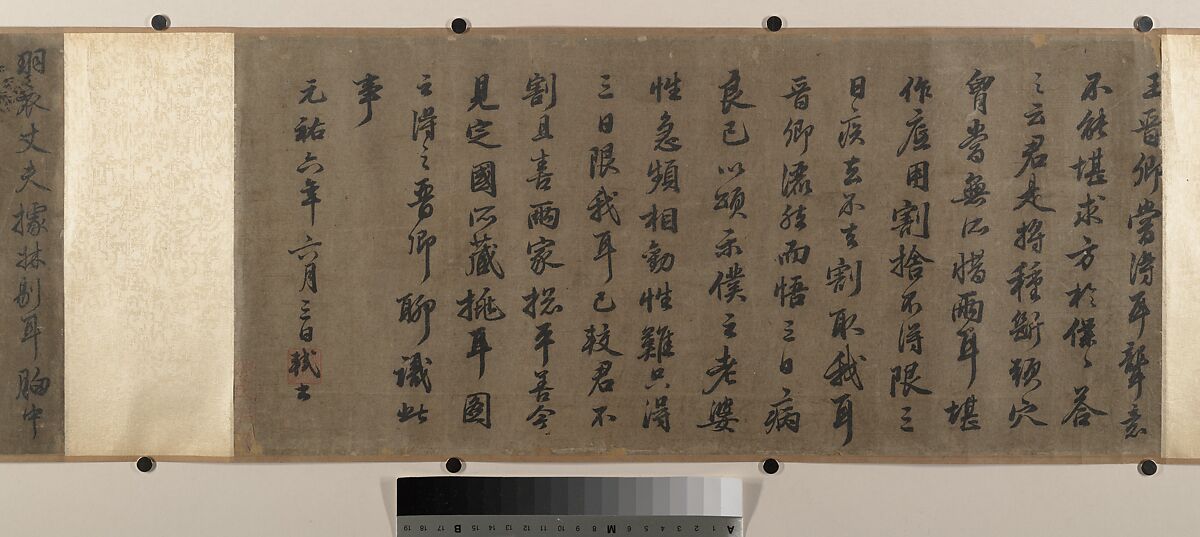 王晉卿嘗得耳聾意
不能堪求方於僕僕答
之云君是將種斷頭穴
胷當無所惜兩耳堪
作底用割捨不得限三
日疾去不去割取我耳
晉卿灑然而悟三日病
良已以頌示僕云老婆
性急頻相勸性難只得
三日限我耳已較君不
割且喜兩家揔平善今
見定國所藏挑耳圖
云得之晉卿聊識此
事
元祐六年六月三日軾書
羽衣丈夫據牀剔耳胸中
A 1 2 3 4 5 6 M 8 9 10 11 12 13 14 15 B 17 18 19